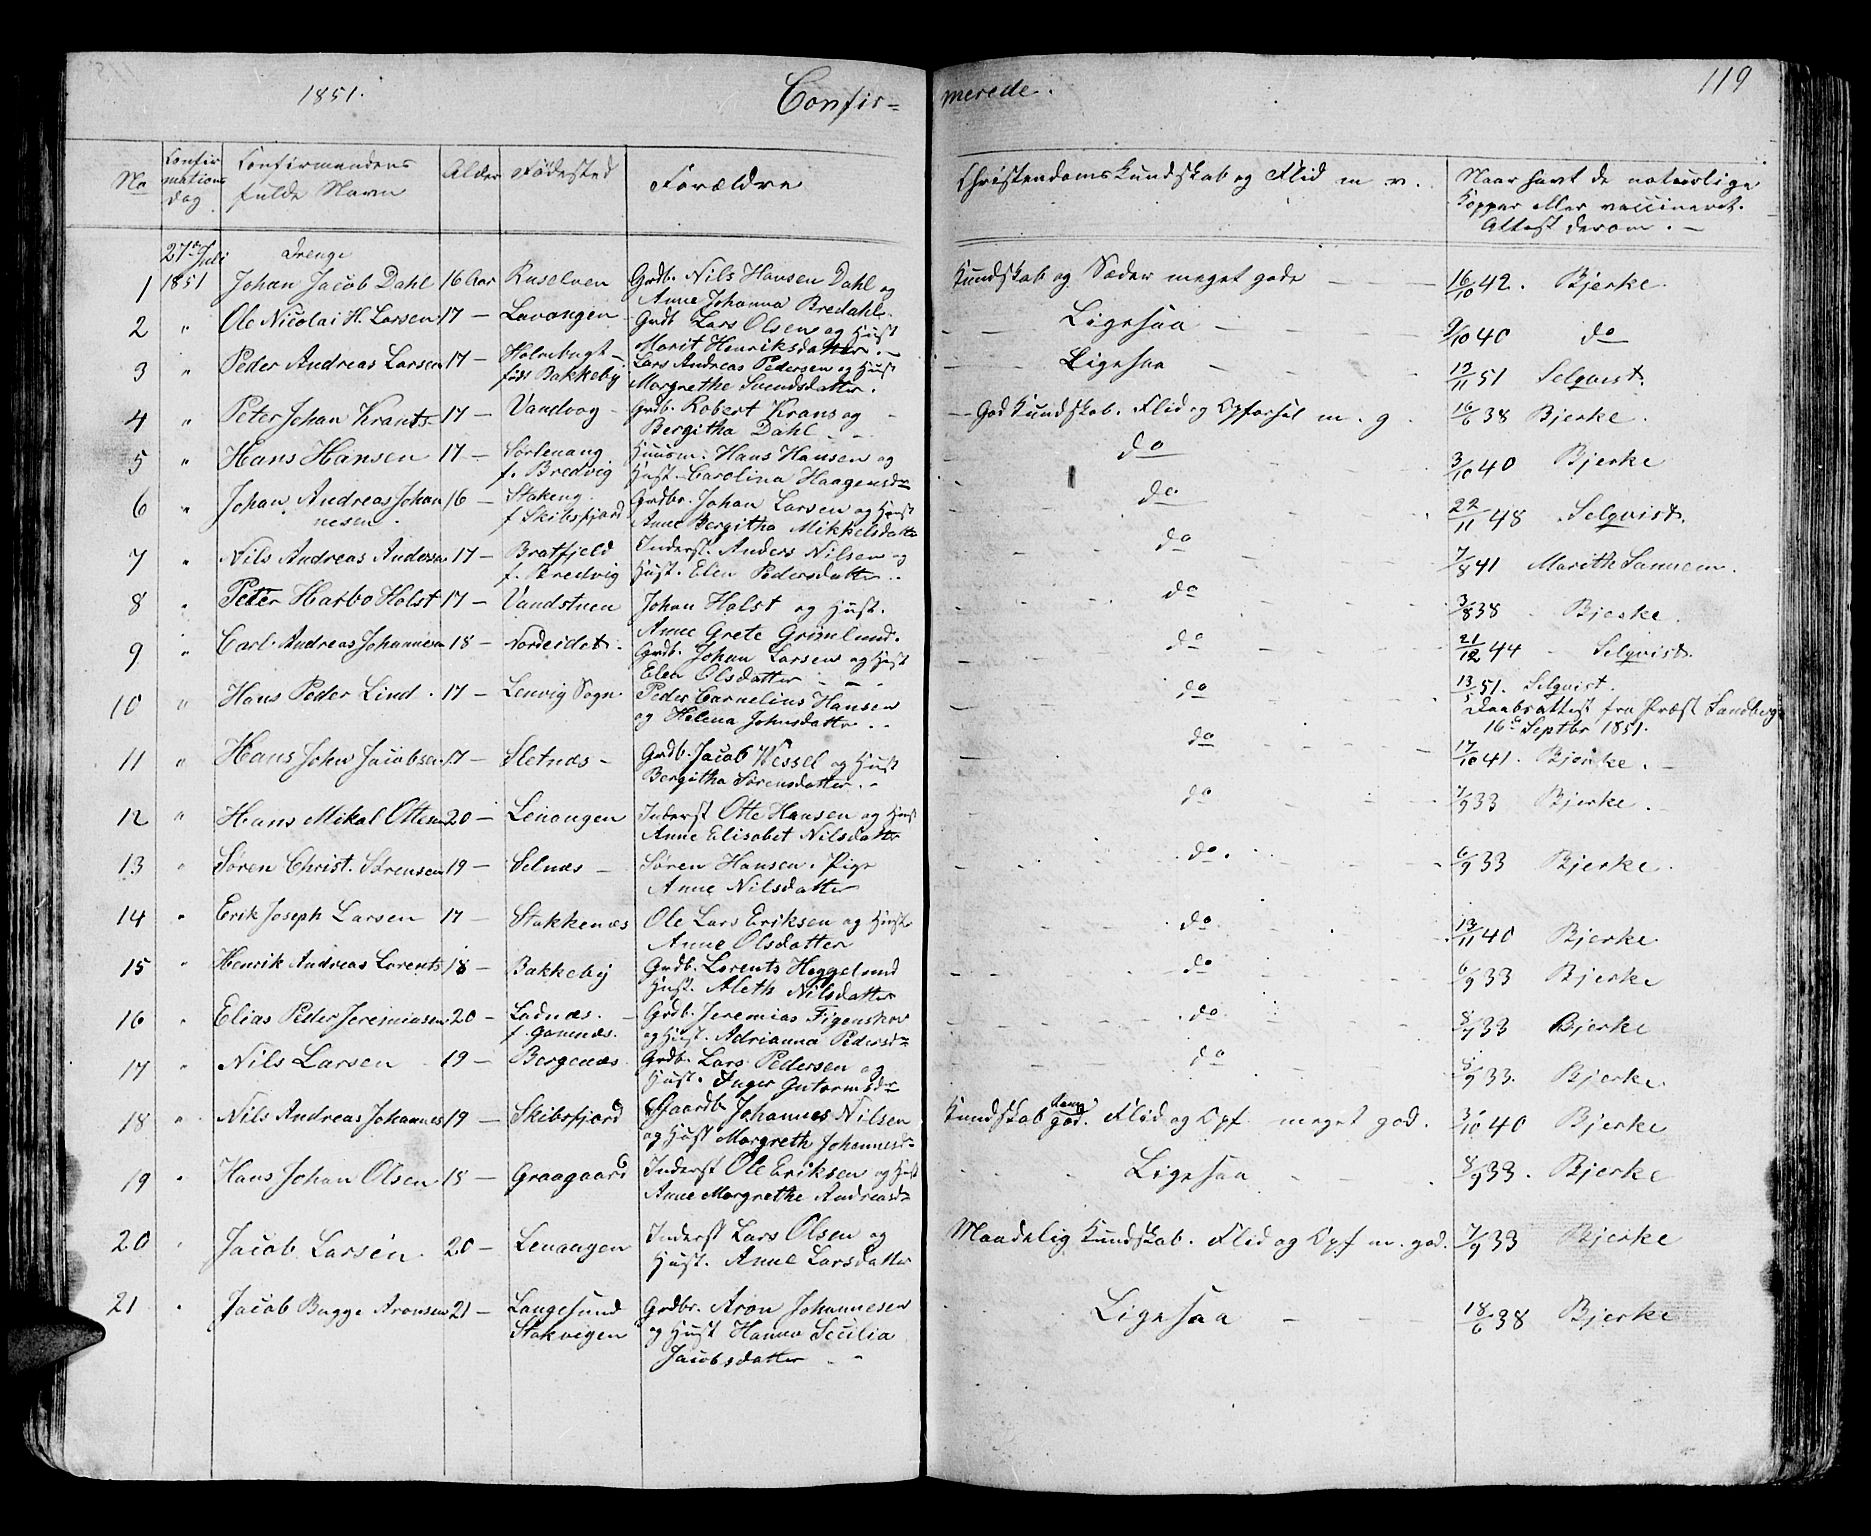 1851. Confir= merede. 119
No Confirmations dag Confirmandens fulde Navn Alder Fødested Forældre Christendomskundskab og Flid m. v. Naar havt de naturlige Kopper eller vaccineret. Attest derom. —
27de Juli Drenge
1 1851 Johan Jacob Dahl 16 Aar Grdb. Nils Hansen Dahl og Anne Johanna Bredahl. Kundskab og Sæder meget gode — — — 16/10 42. Bjerke
2 " Ole Nicolai H. Larsen 17 — Grdb Lars Olsen og Hust Marit Henriksdatter. — Ligesaa 9/10 40 do
3 " Peder Andreas Larsen 17 — født Bakkeby Lars Andreas Pedersen og Hust Margrethe Svendsdatter. Ligesaa 51 Selqvist.
4 " Peter Johan Krants 17 — Vandvag — Grdb. Robert Krans og Bergitha Dahl — God Kundskab. Flid og Opførsel m. g. 16/6 38 Bjerke.
5 " Hans Hansen 17 — Sørlenang f. Bredvig Huusm: Hans Hansen og Hust. Carolina Haagensdr do 3/10 40 Bjerke
6 " Johan Andreas Johannesen 16 — f. Skibsfjord Grdbr. Johan Larsen og Hust Anne Bergitha Mikkelsdatter do 22/11 48 Selqvist.
7 " Nils Andreas Andersen 17 — Bratfjeld f. Bredvig Inderst. Anders Nilsen og Hust. Elen Pedersdatter. do 7/8 41 Marith
8 " Peter Harbo Holst 17 — Vandstuen Johan Holst og Hust. Anne Grete Grønlund. do 3/8 38 Bjerke.
9 " Carl Andreas Johannesen 18 — Nordeidet. Grdb. Johan Larsen og Hust Elen Olsdatter do 21/12 44 Selqvist.
10 " Hans Peder Lind. 17 — Lenvig Sogn. Peder Cornelius Hansen og Helena Johnsdatter do 13/5 51. Selqvist. Daabsattest fra Præst Sandberg 16de Septbr 1851.
11 " Hans John Jacobsen 17 — Sletnæs — Grdb. Jacob Wessel og Hust Bergitha Sørensdatter. do 17/10 41. Bjerke. —
12 " Hans Mikal Ottesen 20 — Lenangen Inderst Otte Hansen og Hust Anne Elisabet Nilsdatter do 7/9 33 Bjerke.
13 " Søren Christ. Sørensen 19 — Selnæs — Søren Hansen. Pige Anne Nilsdatter do. 6/9 33 Bjerke.
14 " Erik Joseph Larsen 17 — Stakkenæs Ole Lars Eriksen og Hust Anne Olsdatter do 40 Bjerke
15 " Henrik Andreas Lorents 18 — Bakkeby Grdb. Lorents Heggelund Hust. Aleth Nilsdatter do 6/9 33 Bjerke
16 " Elias Peder Jeremiasen 20 — Ladnæs. f. Gamnæs. Grdb. Jeremias Figenskov og Hust. Adrianna Pedersdr do. 8/9 33 Bjerke
17 " Nils Larsen 19 — Bergenæs Grdb. Lars Pedersen og Hust. Inger Gutormsdr do 8/9 33. Bjerke.
18 " Nils Andreas Johannes 19 — Skibsfjord Gaardb Johannes Nilsen og Hust Margreth Johannesdr Kundskab god. Flid og Opf. meget god. 3/10 40 Bjerke
19 " Hans Johan Olsen 18 — Graagaard Inderst Ole Eriksen og Hust Anne Margrethe Andreasdr Ligesaa 8/9 33. Bjerke
20 " Jacob Larsen. 20 — Lenangen Inderst Lars Olsen og Hust. Anne Larsdatter Maadelig Kundskab. Flid og Opf m. god. 7/9 33 Bjerke
21 " Jacob Bugge Aronsen 21 — Langesund Stakvigen Grdbr. Aron Johannesen og Hust Hanna Secilia Jacobsdatter Ligesaa — — — 18/6 38 Bjerke